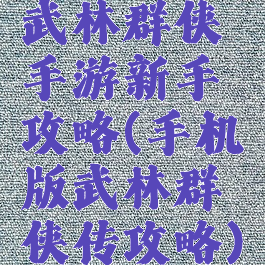 武林群侠
手游新手
攻略(手机
版武林群
侠传攻略)